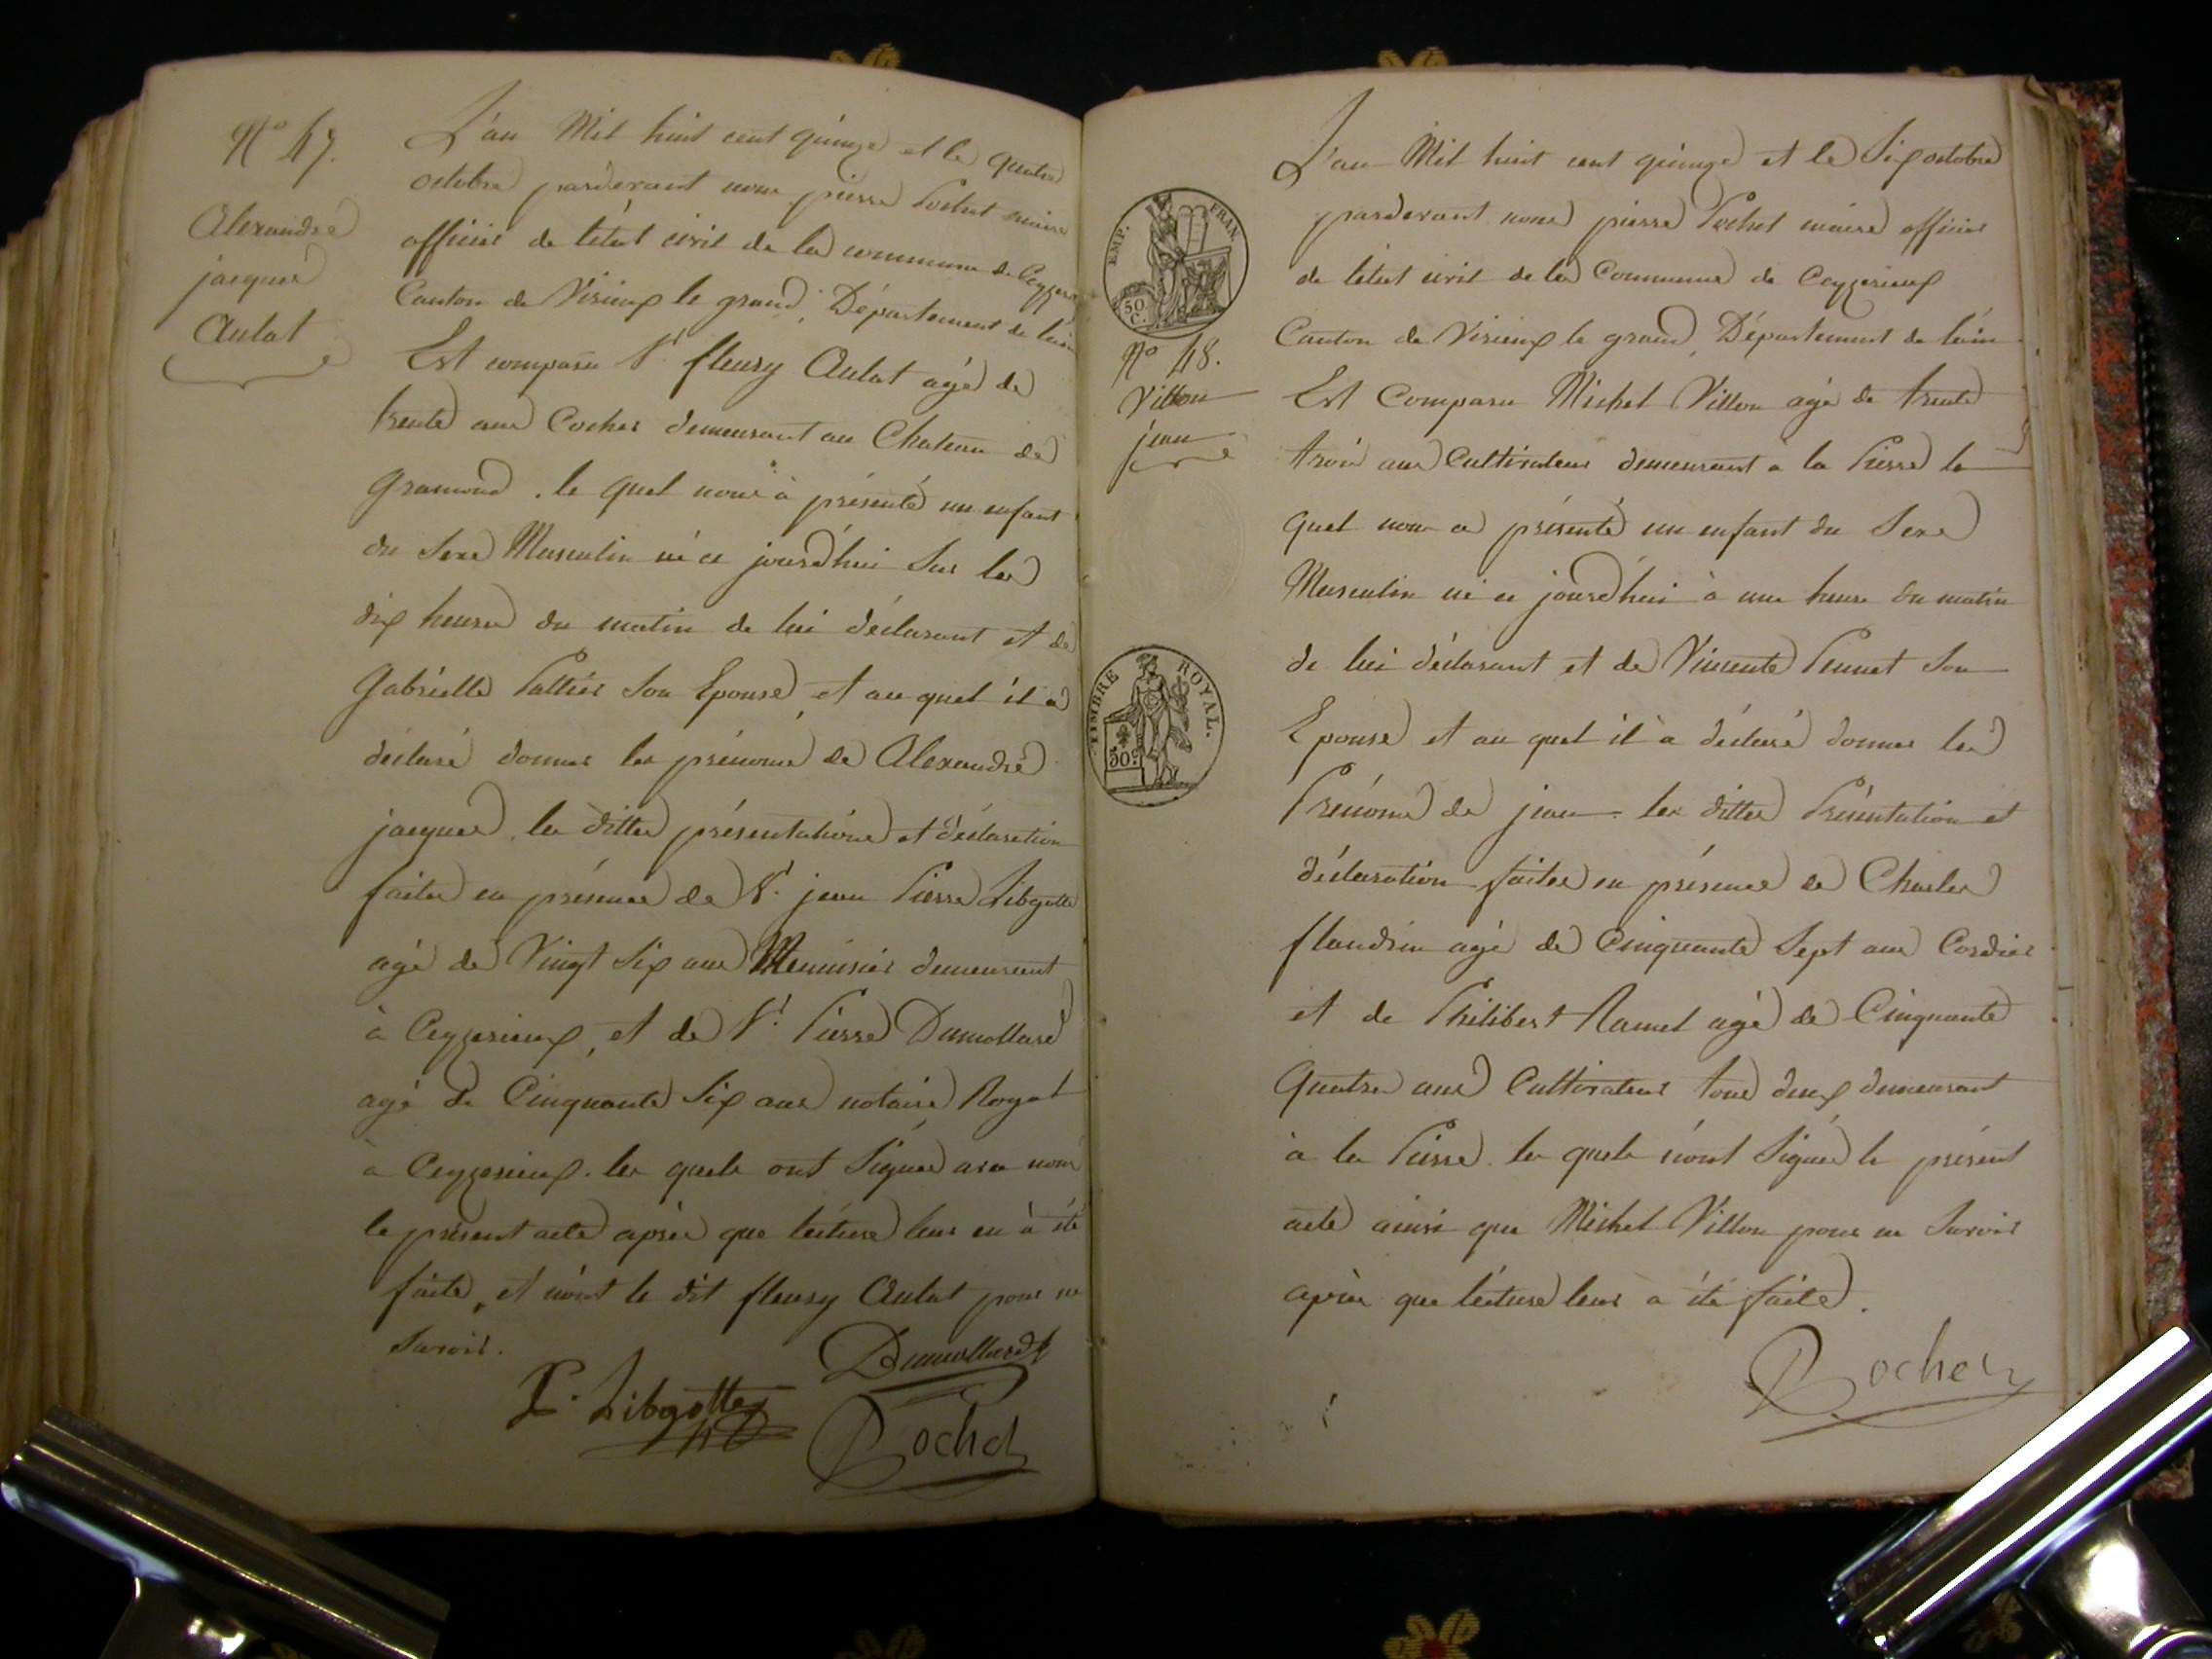 N° 47.
Alexandre
jacques
Aulat
L'an Mil huit cent quinze et le quatre
octobre pardevant nous pierre Pochet maire
officier de létat civil de la commune de Ceyzerieux
Canton de Virieux le grand, Département de l'ain
Est comparu Sr. fleury Aulat agé de
trente ans Cocher demeurant au Chateau de
Gramond. le quel nous à présenté un enfant
du Sexe Masculin né ce jourd'hui Sur les
dix heures du matin de lui déclarant et de
Gabrielle Pattier Son Epouse, et au quel il a
déclaré donner les prénoms de Alexandre
jacques. les dittes présentations et déclaration
faites en présence de Sr. jean Pierre Libgotte
agé de Vingt Six ans Menuisier demeurant
à Ceyzerieux, et de Sr. Pierre Dumollard
agé de Cinquante Six ans notaire Royal
à Ceyzerieux. les quels ont Signés avec nous
le présent acte après que lecture leur en à été
faite, et non le dit fleury Aulat pour ne
Savoir.
Dumollard
P. Libgotte
Pochet
EMP. FRAN.
50 C.
N° 48.
Villon
jean
TIMBRE ROYAL.
50c.
L'an Mil huit cent quinze et le Six octobre
pardevant nous pierre Pochet maire officier
de létat civil de la Commune de Ceyzerieux
Canton de Virieux le grand, Département de l'ain
Est Comparu Michel Villon agé de trente
trois ans Cultivateur demeurant a la Pierre le
quel nous a présenté un enfant du Sexe
Masculin né ce jourd'hui à une heure du matin
de lui déclarant et de Vincente Son
Epouse et au quel il à déclaré donner les
Prénoms de jean. les dittes Présentation et
déclaration faites en présence de Charles
flandrin agé de Cinquante Sept ans Cordier
et de Philibert Ramel agé de Cinquante
Quatre ans Cultivateur tous deux demeurant
à la Pierre. les quels n'ont Signé le présent
acte ainsi que Michel Villon pour ne Savoir
après que lecture leur a été faite.
Pochet